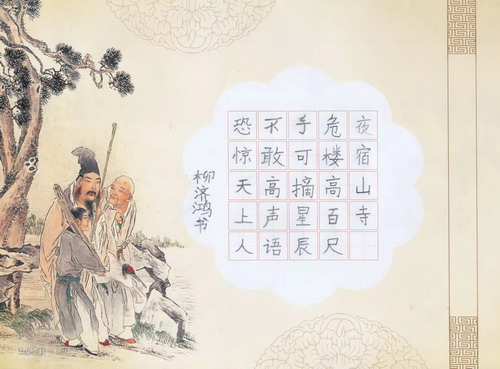 夜宿山寺
危楼高百尺
手可摘星辰
不敢高声语
恐惊天上人
柳济鸿书